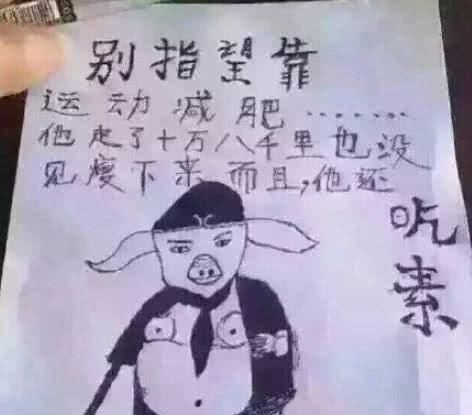 别指望靠
运动减肥.......
他走了十万八千里也没
见瘦下来而且,他还
吃素